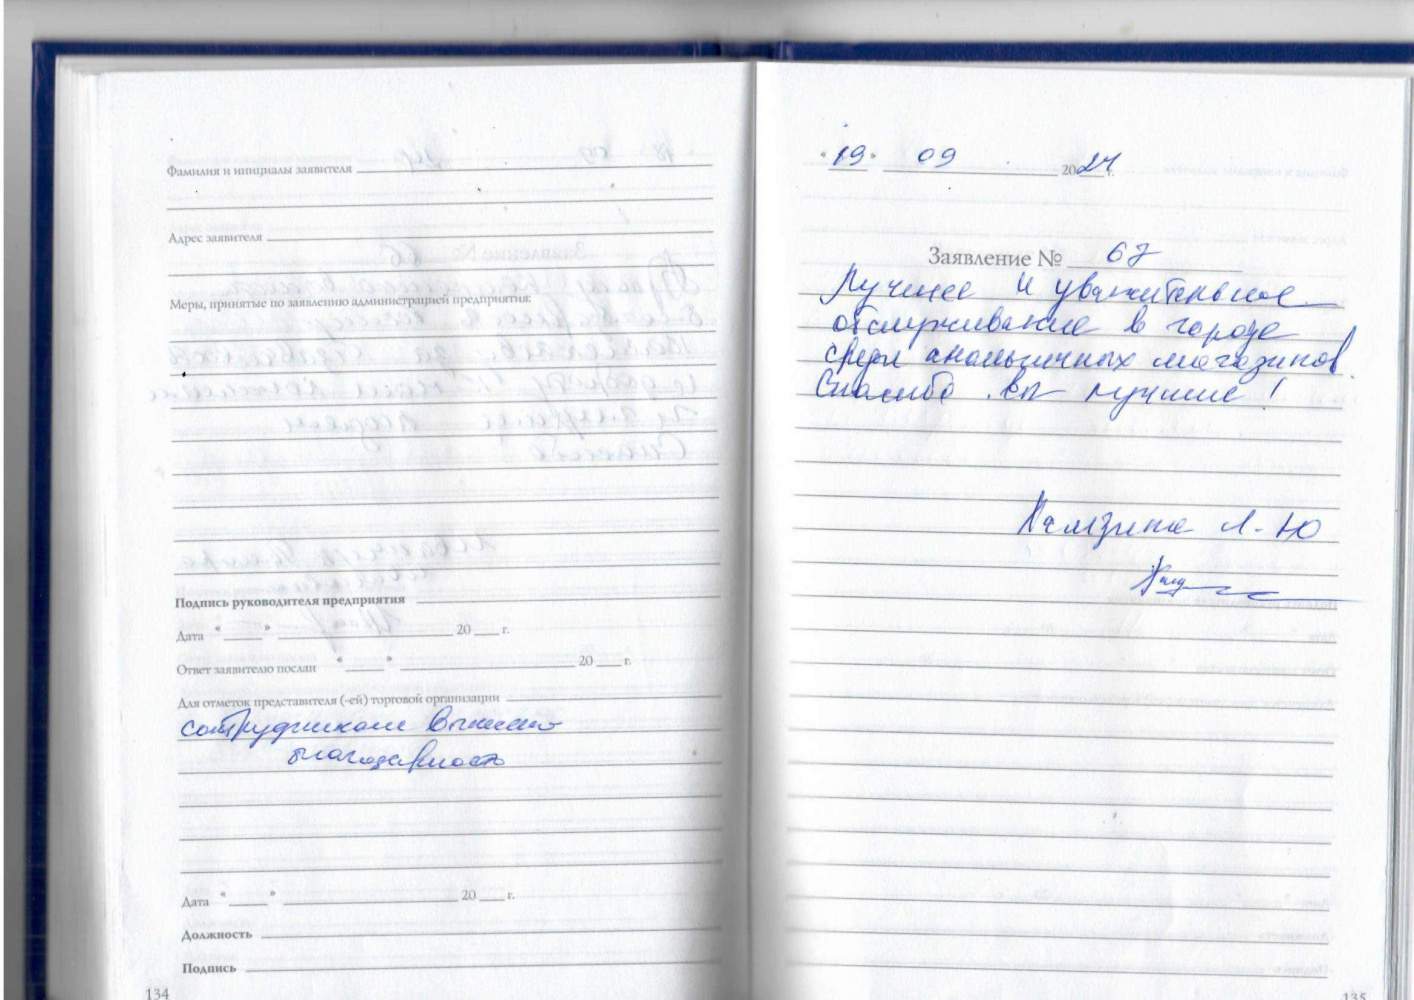 Фамилия и инициалы заявителя
Адрес заявителя
Меры, принятые по заявлению администрацией предприятия:
Подпись руководителя предприятия
Дата “ ” 20 г.
Ответ заявителю послан “ ” 20 г.
Для отметок представителя (-ей) торговой организации
сотрудникам вынесено
благодарность
Дата “ ” 20 г.
Должность
Подпись
134
“19” 09 2024 г.
Заявление № 67
Лучшее и уважительное
обслуживание в городе
среди аналогичных магазинов.
Спасибо вы лучшие!
Л. Ю
135